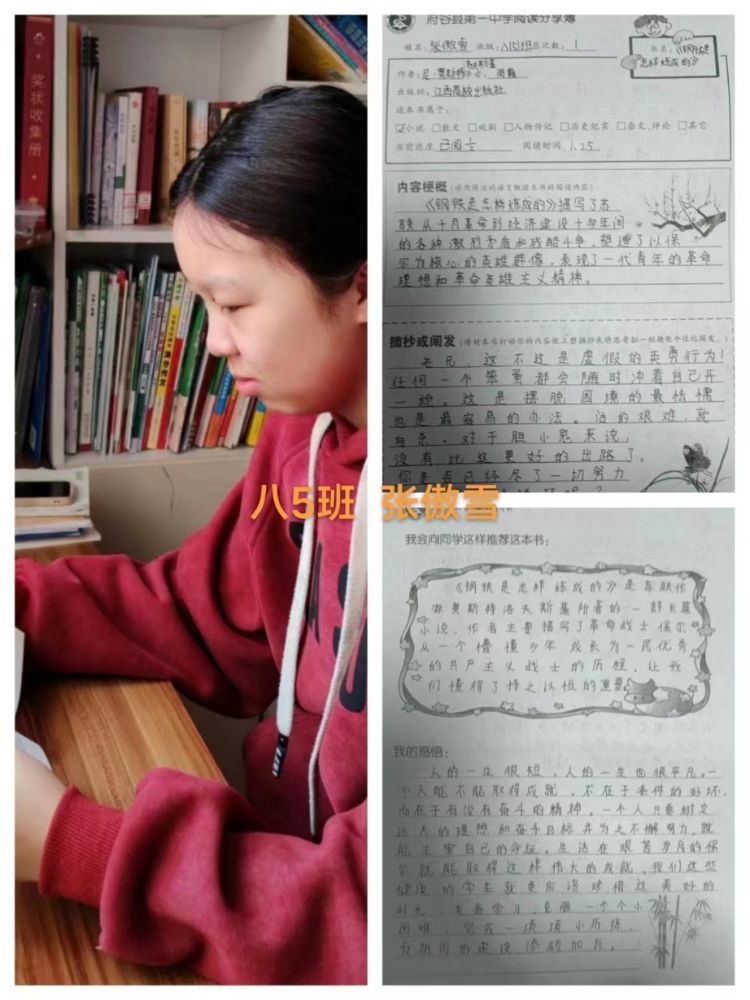 奖状收集册
府谷县第一中学阅读分享簿
姓名:张傲雪 班级:八(5)班 次数:1
书名:《钢铁是怎样炼成的》
作者:尼·奥斯特洛夫斯基
出版社:江西高校出版社
这本书属于:
☑小说 □散文 □戏剧 □人物传记 □历史纪实 □杂文、评论 □其它
当前进度 已阅 阅读时间 1.25
内容梗概(请用简洁的语言概述本书的阅读内容)
《钢铁是怎样炼成的》描写了苏
联从十月革命到经济建设十多年间
的各种激烈矛盾和残酷斗争,塑造了以保
尔为核心的英雄群像,表现了一代青年的革命
理想和革命英雄主义精神。
摘抄或阐发
老兄,这不过是虚假的英勇行为!
任何一个笨蛋都会随时冲着自己开
一枪。这是摆脱困境的最怯懦
也是最容易的办法。活的艰难,就
自杀。对于胆小鬼来说,
没有比这更好的出路了。
你是否已经尽了一切努力
八5班 张傲雪
我会向同学这样推荐这本书:
《钢铁是怎样炼成的》是苏联作
家奥斯特洛夫斯基所著的一部长篇
小说,作者主要描写了革命战士保尔
从一个懵懂少年成长为一民优秀
的共产主义战士的历程,让我
们懂得了持之以恒的重要
我的感悟:
人的一生很短,人的一生也很平凡。一
个人能不能取得成就,不在于条件的好坏,
而在于有没有奋斗的精神。一个人只要树立
远大的理想和奋斗目标并为之不懈努力,就
能主宰自己的命运。生活在艰苦岁月的保
尔就能取得这样伟大的成就,我们这些
健康的学生就更应该珍惜这美好的
时光,发奋学习,克服一个个小
困难,完成一项项小历练,
为祖国的建设添砖加瓦。